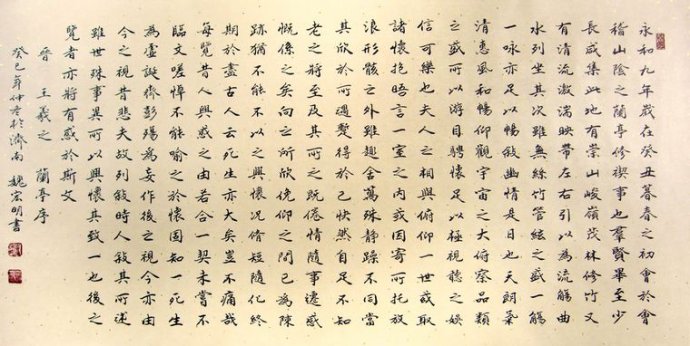 永和九年歲在癸丑暮春之初會於會
稽山陰之蘭亭修禊事也羣賢畢至少
長咸集此地有崇山峻嶺茂林修竹又
有清流激湍映帶左右引以為流觴曲
水列坐其次雖無絲竹管絃之盛一觴
一咏亦足以暢敘幽情是日也天朗氣
清惠風和暢仰觀宇宙之大俯察品類
之盛所以游目騁懷足以極視聽之娛
信可樂也夫人之相與俯仰一世或取
諸懷抱晤言一室之内或因寄所托放
浪形骸之外雖趣舍萬殊靜躁不同當
其欣於所遇蹔得於己快然自足不知
老之將至及其所之既倦情隨事遷感
慨係之矣向之所欣俛仰之間已為陳
跡猶不能不以之興懷況脩短隨化終
期於盡古人云死生亦大矣豈不痛哉
每覽昔人興感之由若合一契未嘗不
臨文嗟悼不能喻之於懷固知一死生
為虛誕齊彭殤為妄作後之視今亦由
今之視昔悲夫故列敘時人錄其所述
雖世殊事異所以興懷其致一也後之
覽者亦將有感於斯文
晉 王羲之 蘭亭序
癸巳年仲冬於濟南 魏宏明書